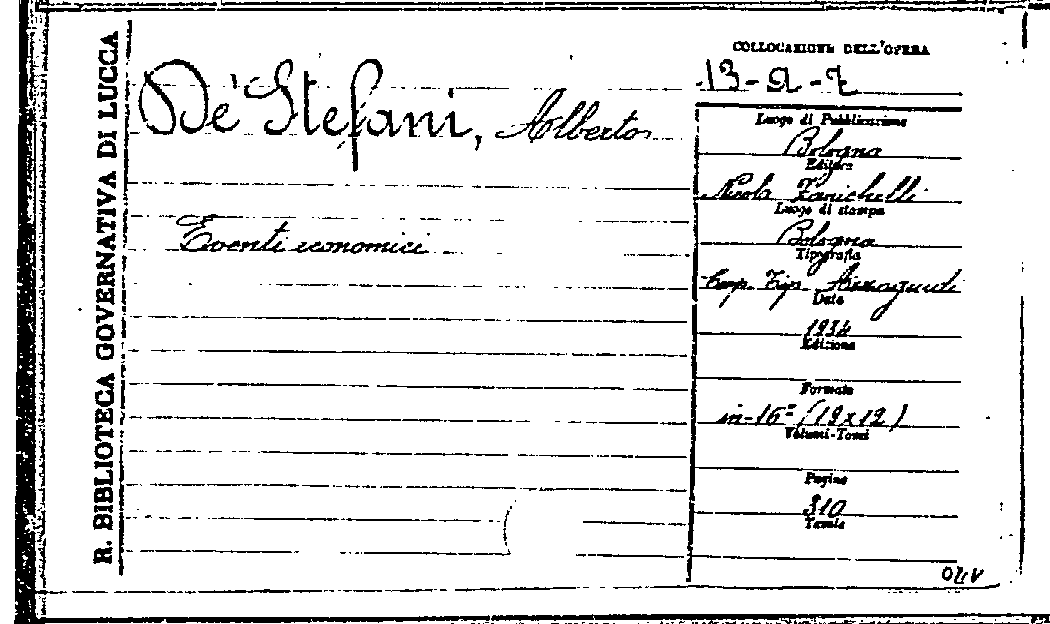 R. BIBLIOTECA GOVERNATIVA DI LUCCA
De' Stefani, Alberto
Eventi economici
COLLOCAZIONE DELL'OPERA
13-Ω-7
Luogo di Pubblicazione
Bologna
Editore
Nicola Zanichelli
Luogo di stampa
Bologna
Tipografia
Coop. Tip. Azzoguidi
Data
1934
Edizione
Formato
in-16º (19x12)
Volumi-Tomi
Pagine
310
Tavole